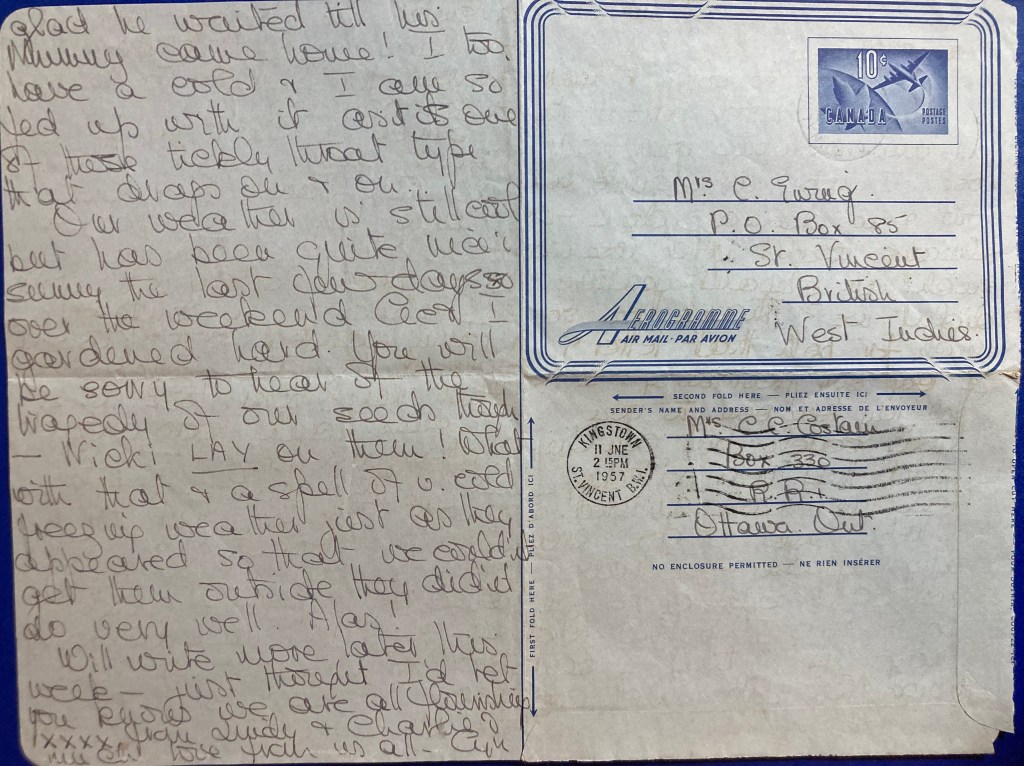 glad he waited till his
Mummy came home! I too
have a cold & I am so
fed up with it as it is one
of those tickly throat type
that drags on & on.
Our weather is still cool
but has been quite nice &
sunny the last few days so
over the weekend Cecil & I
gardened hard. You will
be sorry to hear of the
tragedy of our seeds though
- Nicki LAY on them! What
with that & a spell of v. cold
freezing weather just as they
appeared so that we couldn't
get them outside they didn't
do very well Alas!
Will write more later this
week - just thought I'd let
you know we are all flourishing
from Lindy & Charlie
xxxx
much love from us all -
10¢
CANADA
POSTAGE
POSTES
Mrs C. Ewing.
P.O. Box 85
St. Vincent
British
West Indies.
AEROGRAMME
AIR MAIL · PAR AVION
SECOND FOLD HERE — PLIEZ ENSUITE ICI
SENDER'S NAME AND ADDRESS — NOM ET ADRESSE DE L'ENVOYEUR
Mrs C.C. Costain
Box 330
R.R.1
Ottawa. Ont
KINGSTOWN
11 JNE
2 15PM
1957
ST. VINCENT B.W.I.
NO ENCLOSURE PERMITTED — NE RIEN INSÉRER
FIRST FOLD HERE — PLIEZ D'ABORD ICI